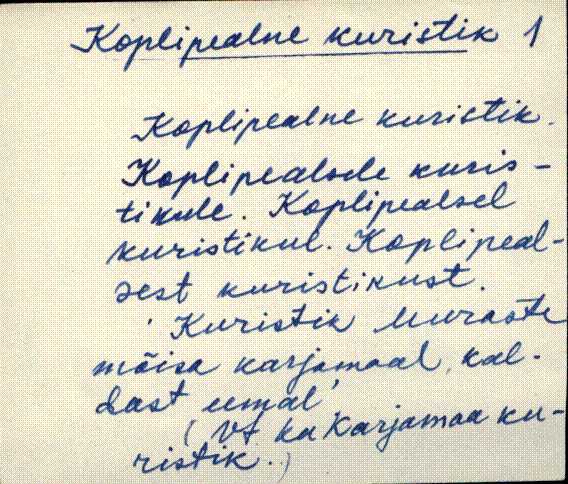 Koplipealne kuristik 1
Koplipealne kuristik.
Koplipealsele kuris-
tikule. Koplipealsel
kuristikul. Koplipeal-
sest kuristikust.
'Kuristik Muraste
mõisa karjamaal, kal-
dast eemal'
(Vt. ka Karjamaa ku-
ristik.)